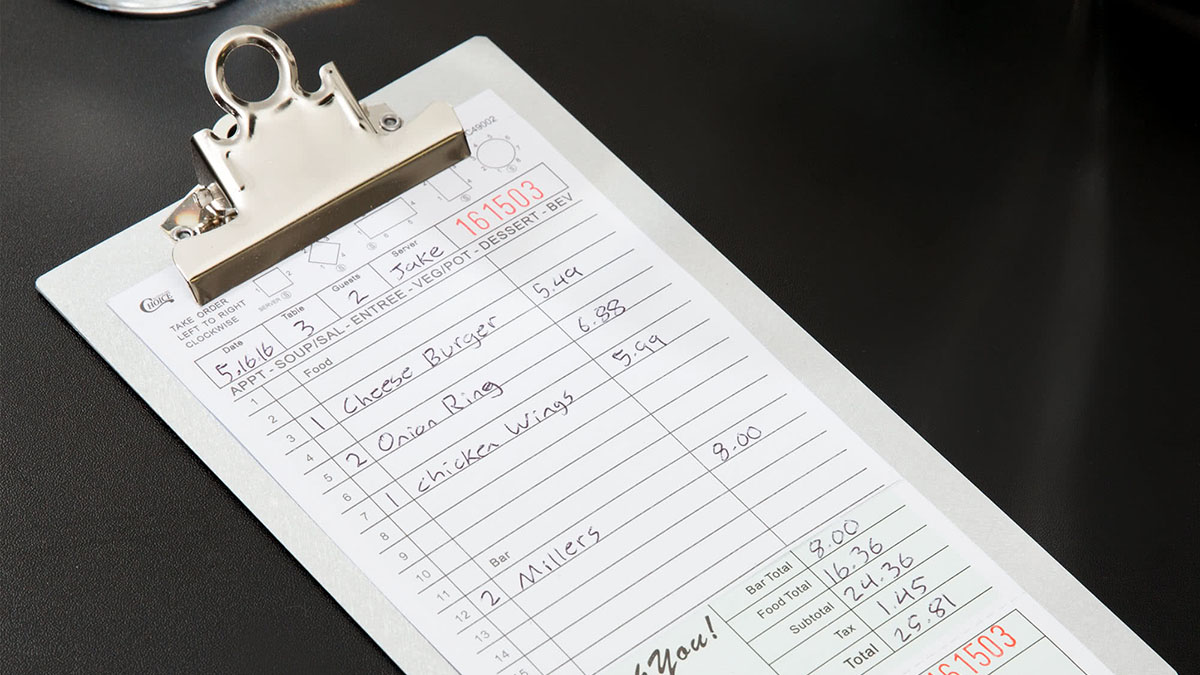 C49002
161503
CHOICE
TAKE ORDER
LEFT TO RIGHT
CLOCKWISE
SERVER
Date Table Guests Server
5.16.16 3 2 Jake
APPT - SOUP/SAL - ENTREE - VEG/POT - DESSERT - BEV
1 Food
2
3 1 Cheese Burger 5.49
4
5 2 Onion Ring 6.88
6
7 1 chicken Wings 5.99
8
9
10
11 Bar
12 2 Millers 8.00
13
14
15
Bar Total 8.00
Food Total 16.36
Subtotal 24.36
Tax 1.45
Total 25.81
You!
161503